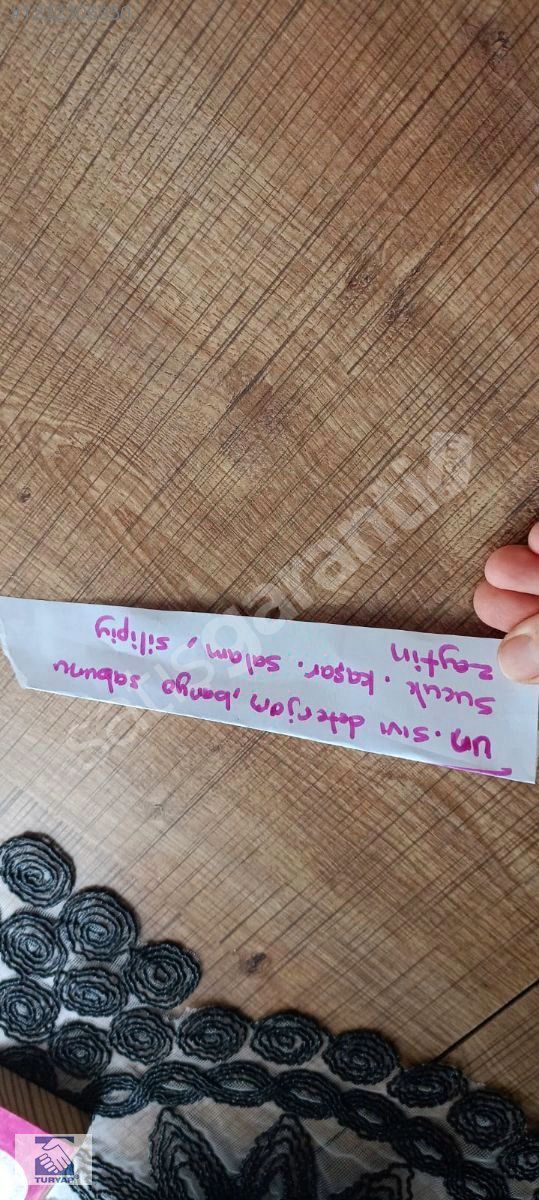 un. sıvı deterjan, banyo sabunu
Sucuk. kaşar. salam, silipiy
zeytin
satışgaranti
TURYAP